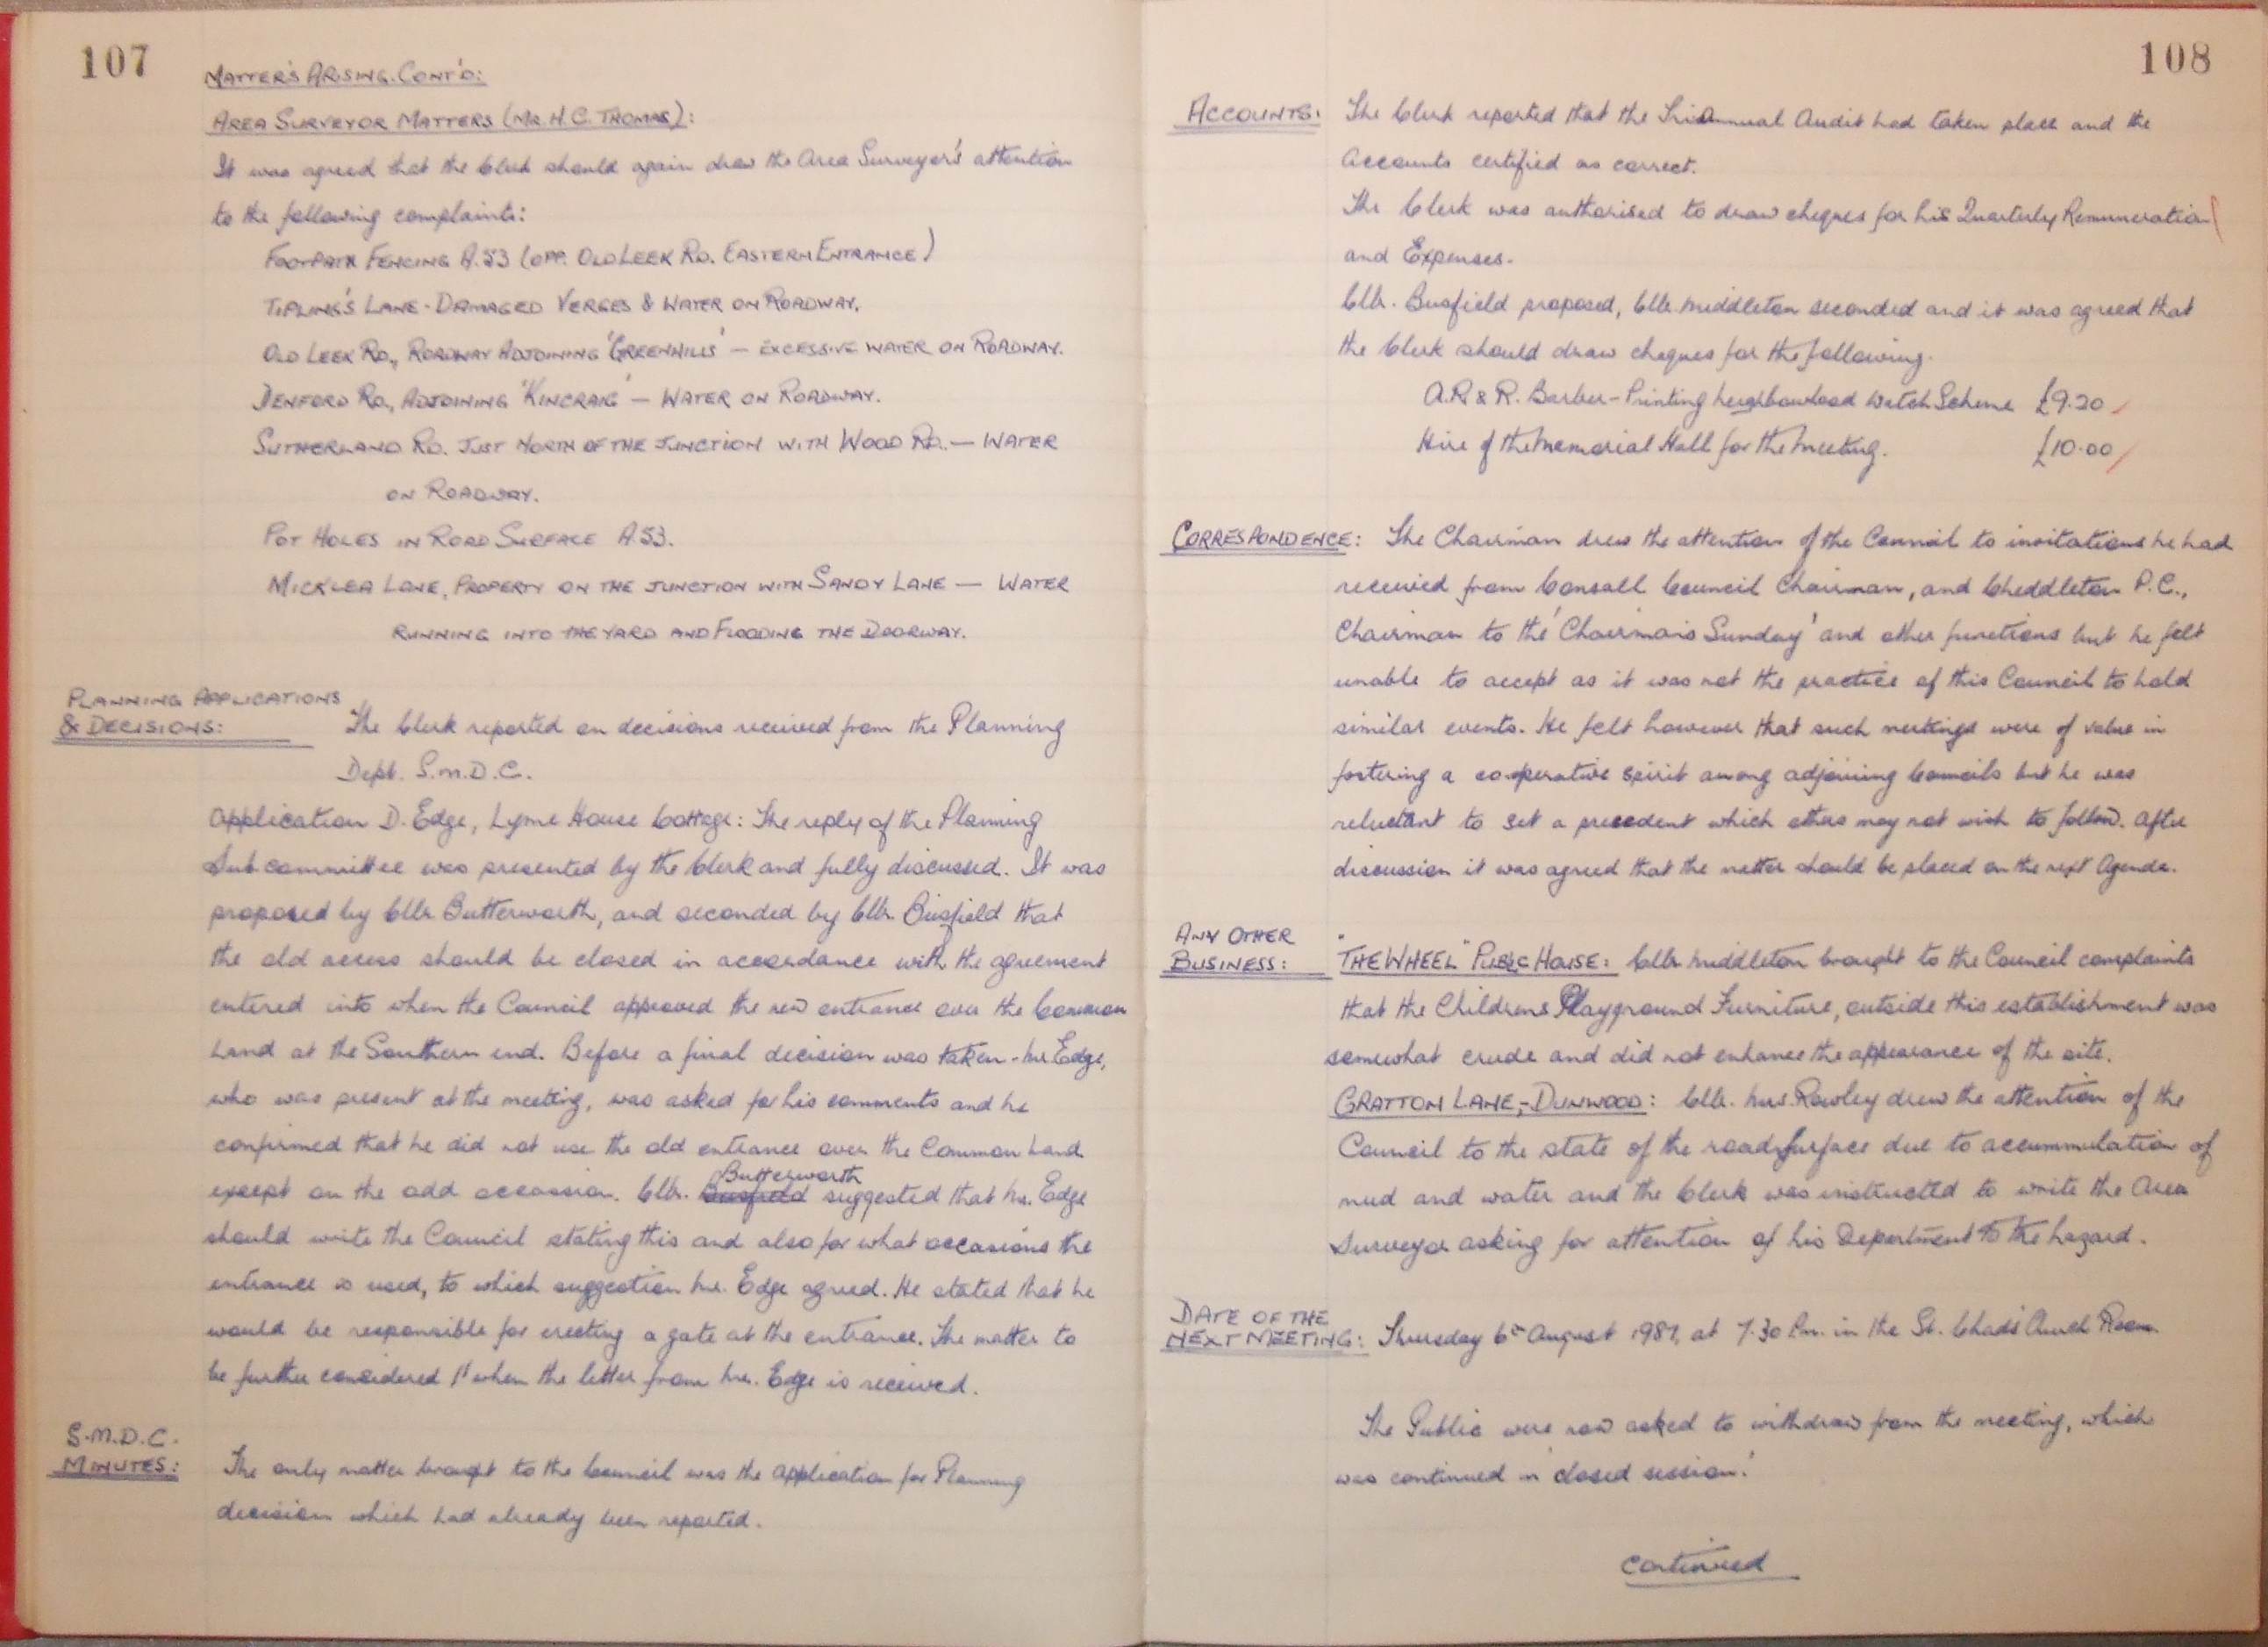 107
MATTER'S ARISING. CONT'D:
AREA SURVEYOR MATTERS (MR. H. C. THOMAS):
It was agreed that the Clerk should again draw the Area Surveyor's attention
to the following complaints:
FOOTPATH FENCING A.53 (OPP. OLD LEEK RD. EASTERN ENTRANCE)
TIPLING'S LANE - DAMAGED VERGES & WATER ON ROADWAY.
OLD LEEK RD., ROADWAY ADJOINING 'GREENHILLS' — EXCESSIVE WATER ON ROADWAY.
DENFORD RD., ADJOINING 'KINCRAIG' — WATER ON ROADWAY.
SUTHERLAND RD. JUST NORTH OF THE JUNCTION WITH WOOD RD. — WATER
ON ROADWAY.
POT HOLES IN ROAD SURFACE A.53.
MICKLEA LANE, PROPERTY ON THE JUNCTION WITH SANDY LANE — WATER
RUNNING INTO THE YARD AND FLOODING THE DOORWAY.
PLANNING APPLICATIONS
& DECISIONS: The Clerk reported on decisions received from the Planning
Dept. S.M.D.C.
Application D. Edge, Lyme House Cottage: The reply of the Planning
Sub committee was presented by the Clerk and fully discussed. It was
proposed by Cllr. Butterworth, and seconded by Cllr. Busfield that
the old access should be closed in accordance with the agreement
entered into when the Council approved the new entrance over the Common
Land at the Southern end. Before a final decision was taken - Mr Edge,
who was present at the meeting, was asked for his comments and he
confirmed that he did not use the old entrance over the Common Land
except on the odd occassion. Cllr. Busfield Butterworth suggested that Mr. Edge
should write the Council stating this and also for what occasions the
entrance is used, to which suggestion Mr. Edge agreed. He stated that he
would be responsible for erecting a gate at the entrance. The matter to
be further considered when the letter from Mr. Edge is received.
S.M.D.C.
MINUTES: The only matter brought to the Council was the application for Planning
decision which had already been reported.
108
ACCOUNTS: The Clerk reported that the Triannual Audit had taken place and the
Accounts certified as correct.
The Clerk was authorised to draw cheques for his Quarterly Remuneration
and Expenses.
Cllr. Busfield proposed, Cllr. Middleton seconded and it was agreed that
the Clerk should draw cheques for the following.
A.R. & R. Barber - Printing Neighbourhood Watch Scheme £9.20
Hire of the Memorial Hall for the Meeting. £10.00
CORRESPONDENCE: The Chairman drew the attention of the Council to invitations he had
received from Consall Council Chairman, and Cheddleton P.C.,
Chairman to the 'Chairman's Sunday' and other functions but he felt
unable to accept as it was not the practice of this Council to hold
similar events. He felt however that such meetings were of value in
fostering a cooperative spirit among adjoining Councils but he was
reluctant to set a precedent which others may not wish to follow. After
discussion it was agreed that the matter should be placed on the next Agenda.
ANY OTHER
BUSINESS: "THE WHEEL" PUBLIC HOUSE: Cllr. Middleton brought to the Council complaints
that the Childrens Playground Furniture, outside this establishment was
somewhat crude and did not enhance the appearance of the site.
GRATTON LANE, - DUNWOOD: Cllr. Mrs. Rowley drew the attention of the
Council to the state of the road surface due to accummulation of
mud and water and the Clerk was instructed to write the Area
Surveyor asking for attention of his Department to the hazard.
DATE OF THE
NEXT MEETING: Thursday 6th August 1987, at 7.30 P.m. in the St. Chad's Church Room.
The Public were now asked to withdraw from the meeting, which
was continued in 'closed session.'
continued